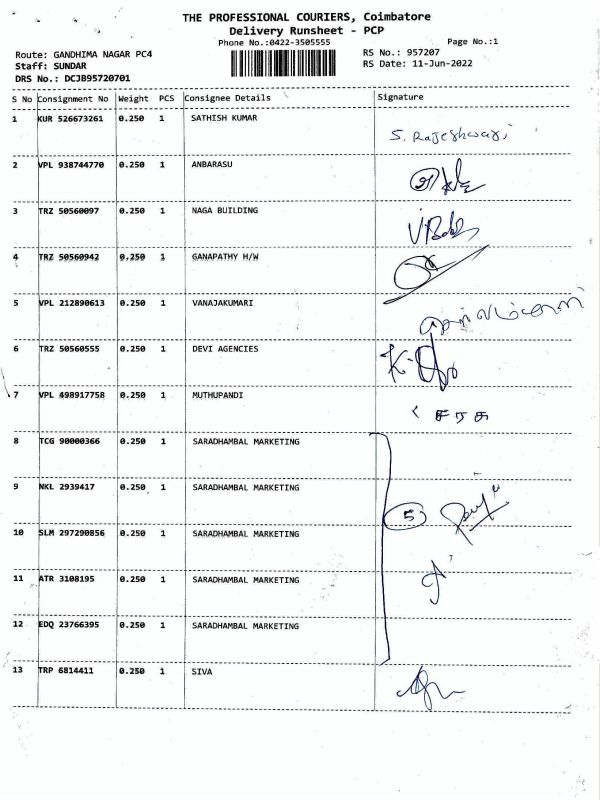 THE PROFESSIONAL COURIERS, Coimbatore
Delivery Runsheet - PCP
Phone No.:0422-3505555 Page No.:1
Route: GANDHIMA NAGAR PC4 RS No.: 957207
Staff: SUNDAR RS Date: 11-Jun-2022
DRS No.: DCJB95720701
S No Consignment No Weight PCS Consignee Details Signature
1 KUR 526673261 0.250 1 SATHISH KUMAR
S. Rajeshwari
2 VPL 938744770 0.250 1 ANBARASU
3 TRZ 50560097 0.250 1 NAGA BUILDING
4 TRZ 50560942 0.250 1 GANAPATHY H/W
5 VPL 212890613 0.250 1 VANAJAKUMARI
6 TRZ 50560555 0.250 1 DEVI AGENCIES
7 VPL 498917758 0.250 1 MUTHUPANDI
8 TCG 90000366 0.250 1 SARADHAMBAL MARKETING
9 NKL 2939417 0.250 1 SARADHAMBAL MARKETING
5
10 SLM 297290856 0.250 1 SARADHAMBAL MARKETING
11 ATR 3108195 0.250 1 SARADHAMBAL MARKETING
12 EDQ 23766395 0.250 1 SARADHAMBAL MARKETING
13 TRP 6814411 0.250 1 SIVA